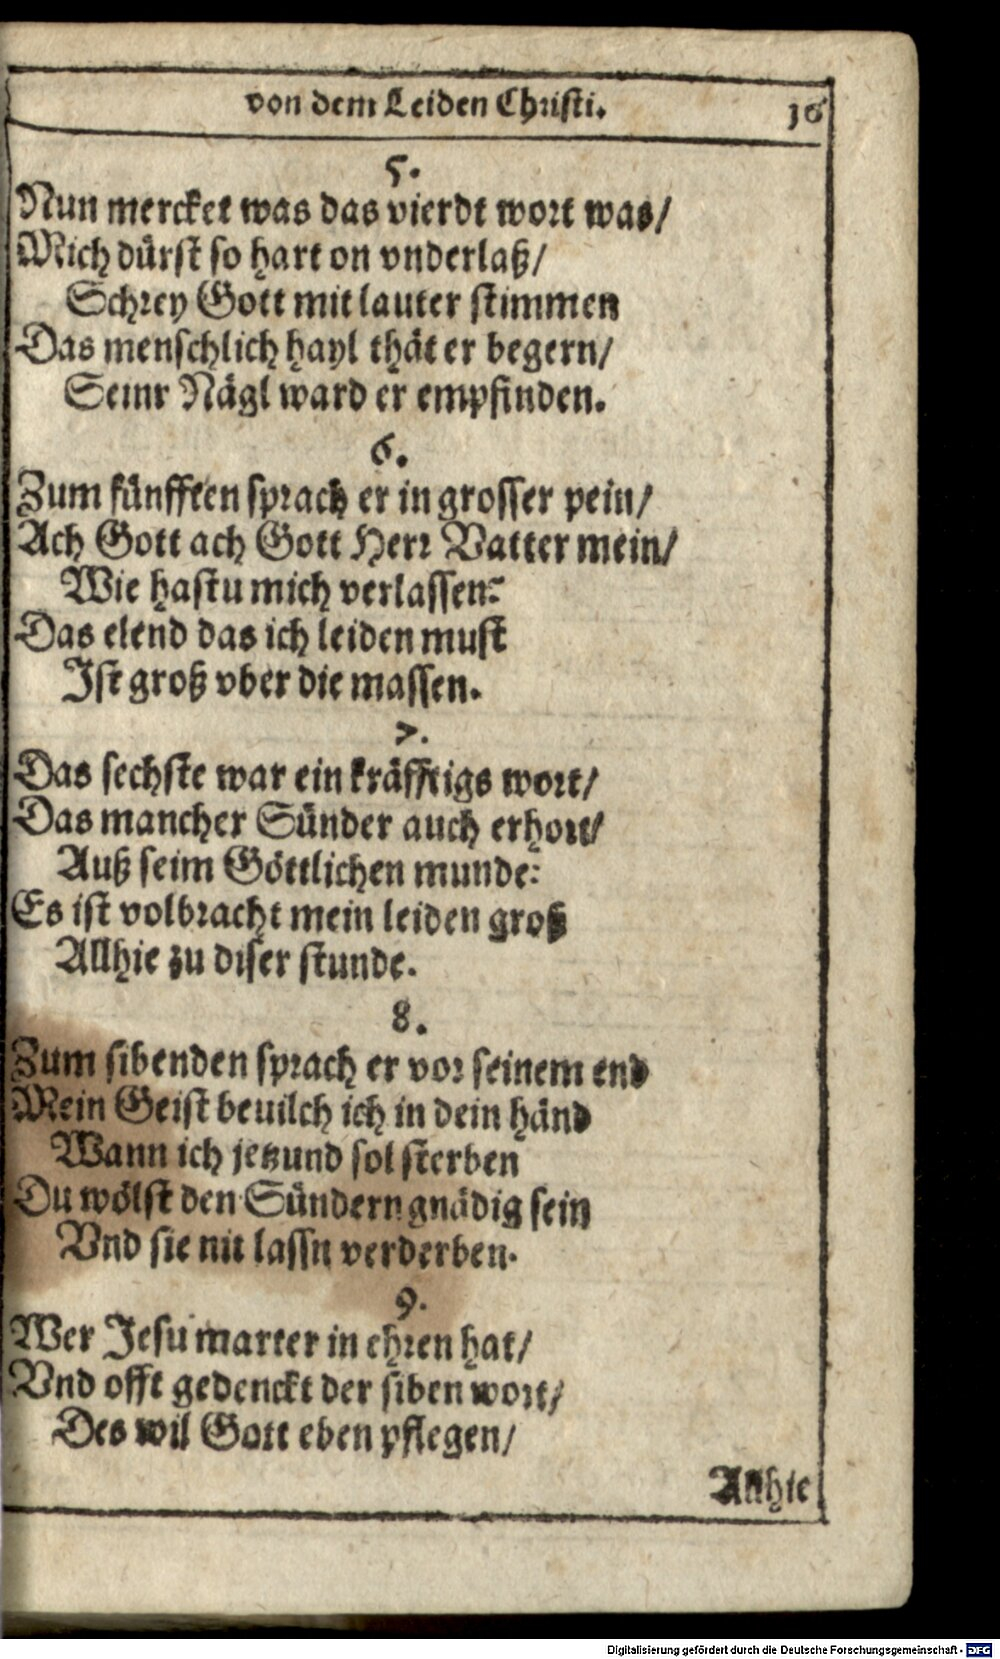 von dem Leiden Christi. 16
5.
Nun mercket was das vierdt wort was/
Mich dürst so hart on vnderlaß/
Schrey Gott mit lauter stimmen
Das menschlich hayl thät er begern/
Seinr Nägl ward er empfinden.
6.
Zum fünfften sprach er in grosser pein/
Ach Gott ach Gott Herr Vatter mein/
Wie hastu mich verlassen:
Das elend das ich leiden must
Ist groß vber die massen.
7.
Das sechste war ein kräfftigs wort/
Das mancher Sünder auch erhort/
Auß seim Göttlichen munde:
Es ist volbracht mein leiden groß
Allhie zu diser stunde.
8.
Zum sibenden sprach er vor seinem end
Mein Geist beuilch ich in dein händ
Wann ich jetzund sol sterben
Du wölst den Sündern gnädig sein
Vnd sie nit lassn verderben.
9.
Wer Jesu marter in ehren hat/
Vnd offt gedenckt der siben wort/
Des wil Gott eben pflegen/
Allhie
Digitalisierung gefördert durch die Deutsche Forschungsgemeinschaft - DFG